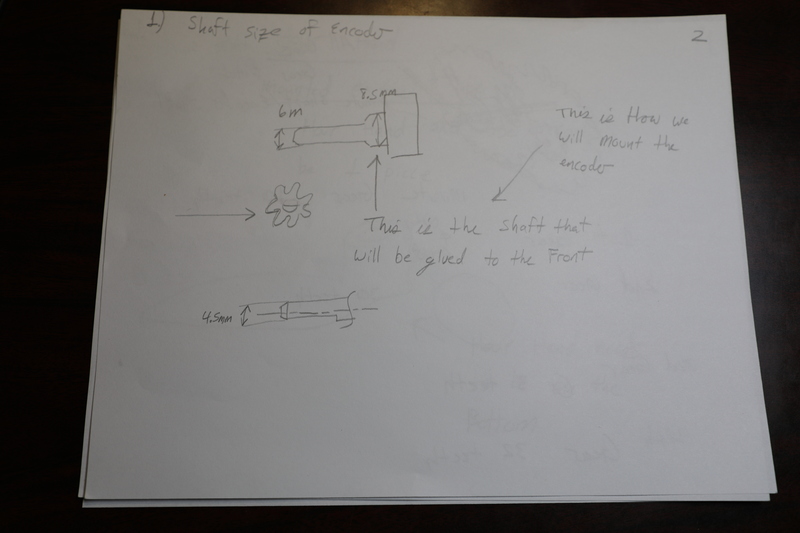 1) Shaft size of Encoder
2
8.5mm
6m
This is How we
will mount the
encoder
This is the shaft that
will be glued to the Front
4.5mm